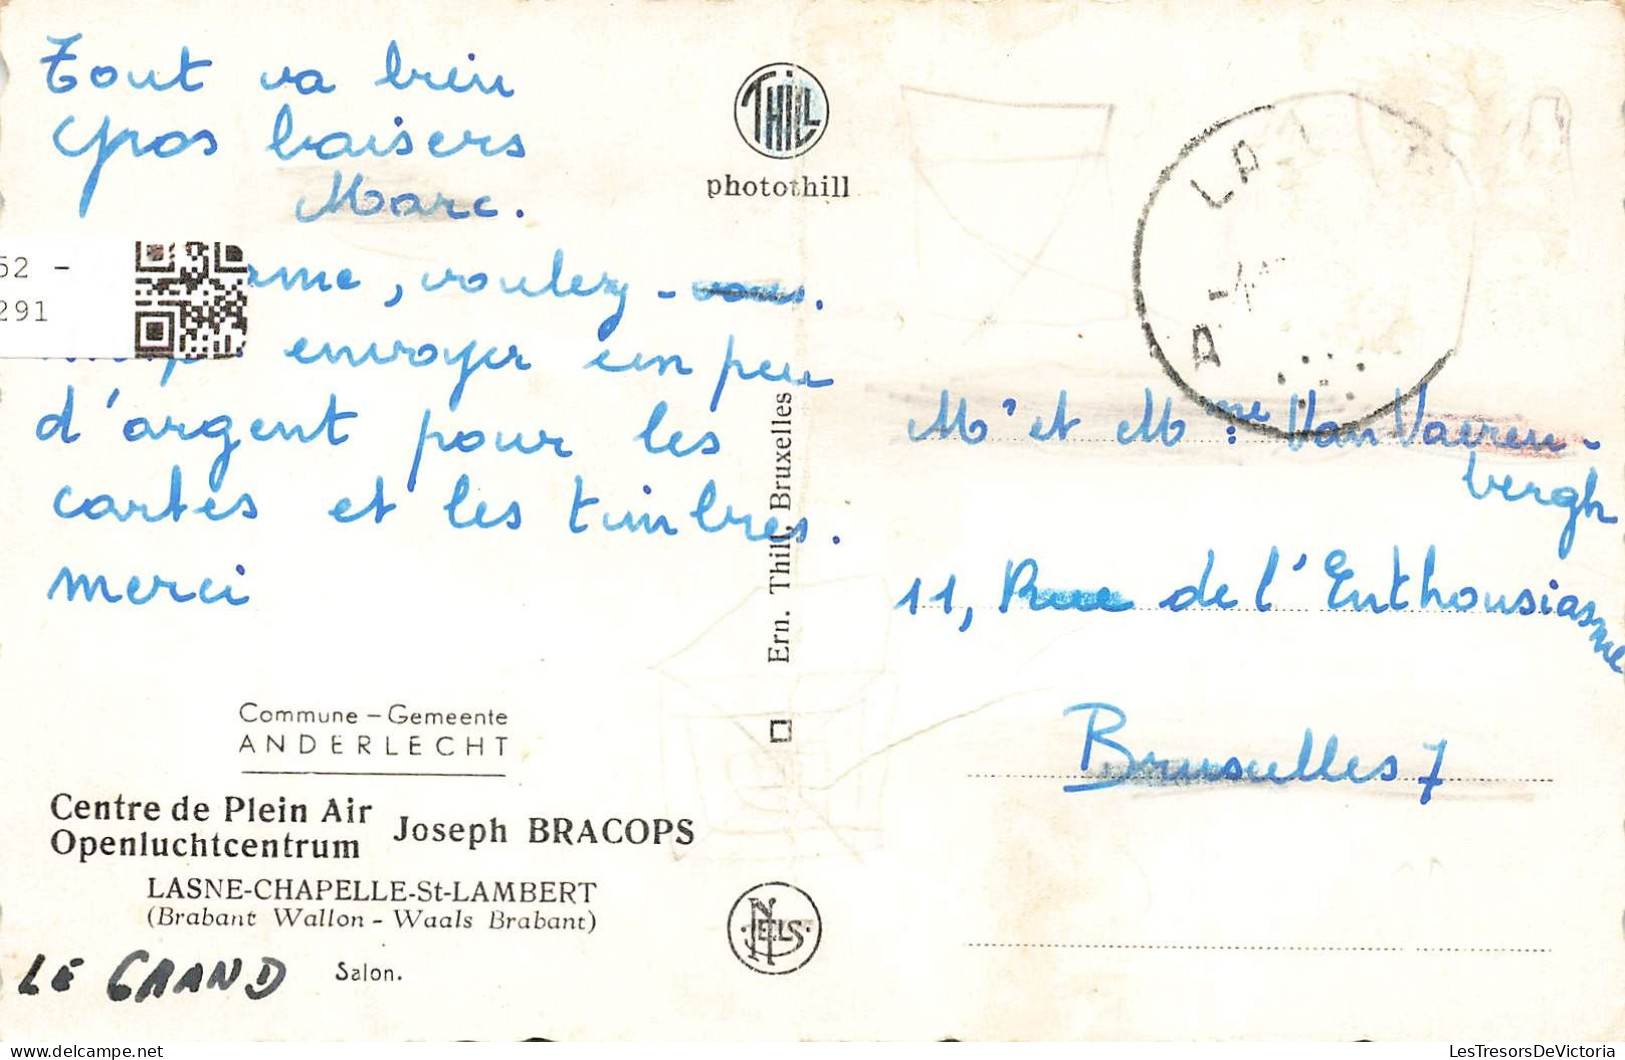 Tout va bien
Gros baisers
Marc.
52 -
291
, voulez-vous.
envoyer un peu
d'argent pour les
cartes et les timbres.
merci
THILL
photothill
Ern. Thill, Bruxelles
Commune – Gemeente
ANDERLECHT
Centre de Plein Air
Openluchtcentrum
Joseph BRACOPS
LASNE-CHAPELLE-St-LAMBERT
(Brabant Wallon - Waals Brabant)
LE GRAND
Salon.
NELS
Mr et Mme: Van Vaeren-
bergh
11, Rue de l'Enthousiasme
Bruxelles 7
LesTresorsDeVictoria